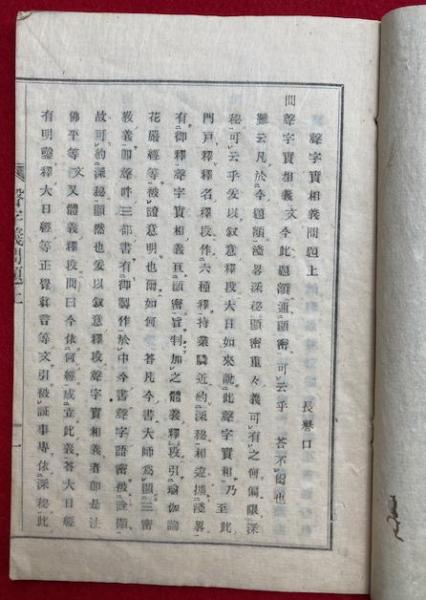 聲字實相義問題上
長譽口
問聲字實相義文今此題額通顯密可云乎 答不爾也
難云凡於今題額淺畧深秘顯密重々義可有之何偏限深
秘可云乎爰以叙意釋段大日如來說此聲字實相乃 至此
門戶釋釋名釋段作六種釋持業隣近約深秘相違據淺畧
有御釋聲字實相義亘顯密旨判加之體義釋段引瑜伽論
花嚴經等被證意明也爾如何 答凡今書大師爲顯三密
教義即聲吽三部書有御製作於中今書聲字語密被
故可約深秘顯然也爰以叙意釋段聲字實相義者即是法
佛平等文又體義釋段問曰今依何經成立此義答大日經
有明鑒釋大日經等正覺眞言等文引被証事專依深秘此
聲字義問題上